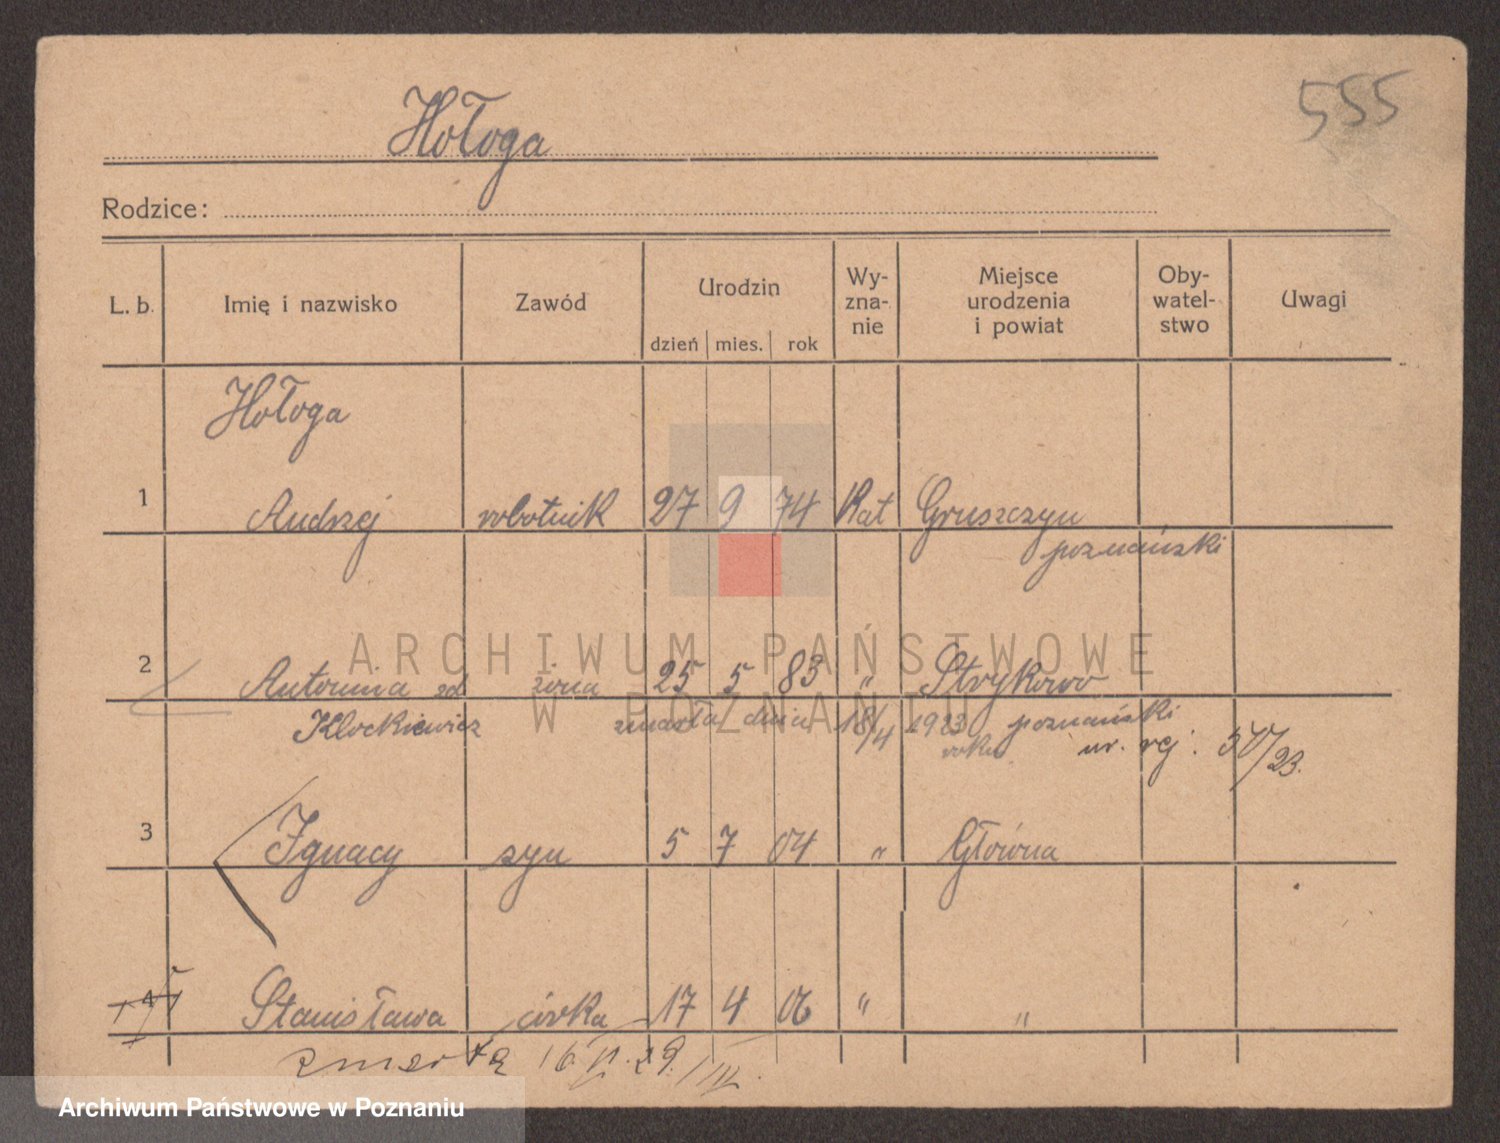 555
Hołoga
Rodzice:
L. b. Imię i nazwisko Zawód Urodzin dzień mies. rok Wy-zna-nie Miejsce urodzenia i powiat Oby-watel-stwo Uwagi
Hołoga
1 Andrzej robotnik 27 9 74 Kat Gruszczyn
poznański
ARCHIWUM PAŃSTWOWE
W POZNANIU
2 Antonina zd żona 25 5 83 " Strykowo
Klockiewicz zmarła dnia 18/4 1923 poznański
roku nr. rej.
3 Ignacy syn 5 7 04 " Główna
4 Stanisława córka 17 4 06 " "
zmarła 16
Archiwum Państwowe w Poznaniu